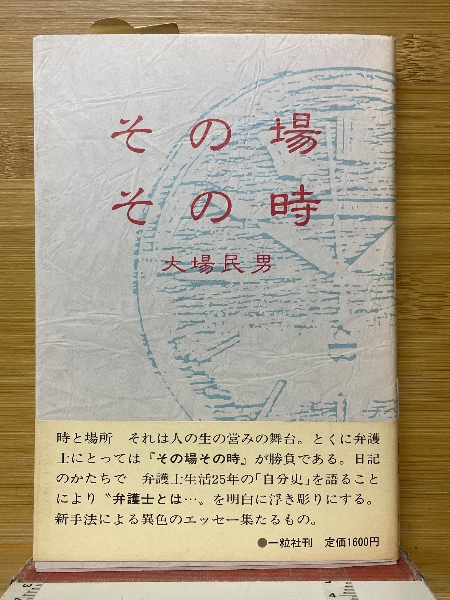 その場
その時
大場民男
時と場所 それは人の生の営みの舞台。とくに弁護
士にとっては『その場その時』が勝負である。日記
のかたちで 弁護士生活25年の「自分史」を語ること
により〝弁護士とは…〟を明白に浮き彫りにする。
新手法による異色のエッセー集たるもの。
●一粒社刊 定価1600円